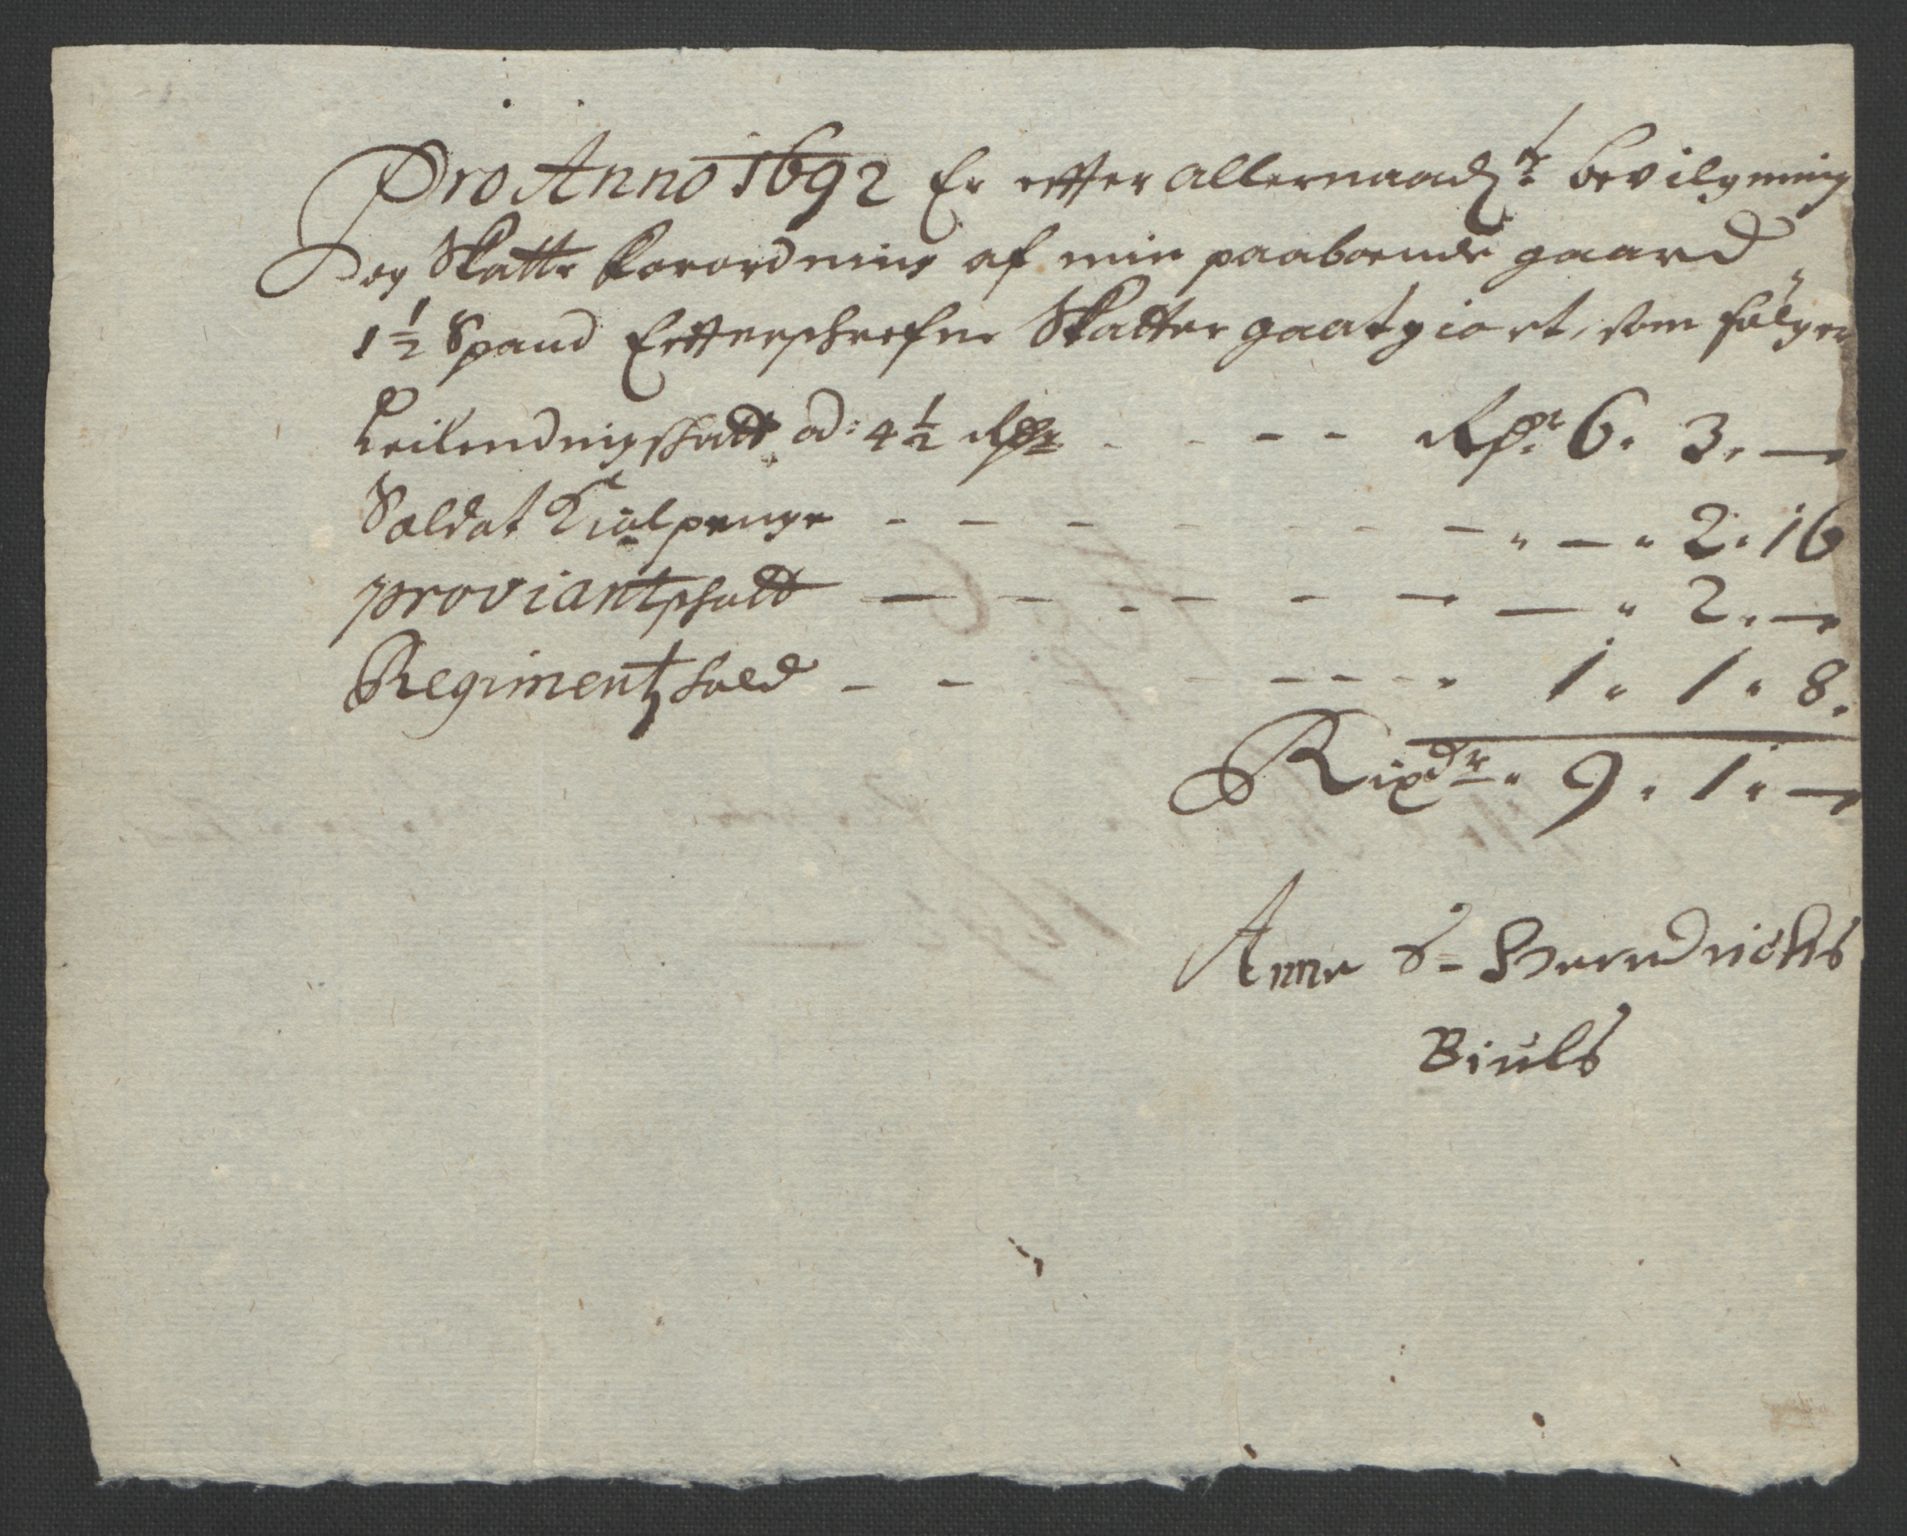 Pro Anno 1692 Er effter allernaad: bevilgning
og Skatte forordning af min paaboende gaard
1½ Spand Effterschrefne Skatter gaat giort, som fölger
Leilendingschatt ad: 4½ Rdr - - - - Rdr 6. 3. —
Soldat Kiolpenge - - - - - - - " — " 2. 16
proviantschatt — - - - - - — " 2. —
Regimentzhold - - - - - - - 1 " 1 " 8.
Rixdr " 9. 1. —
Anne S Henrichs
Biuls